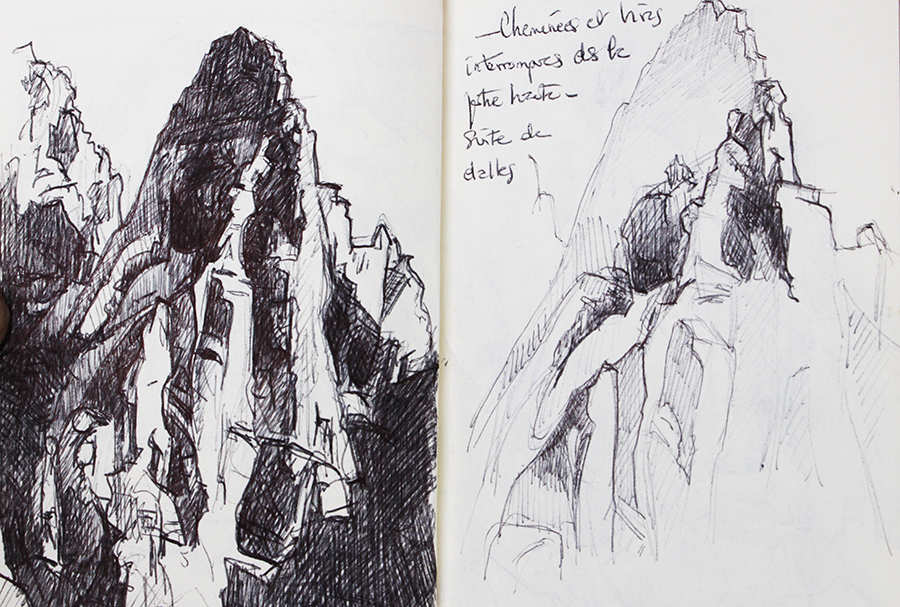 — Cheminées et
interrompues ds la
partie haute —
Suite de
dalles